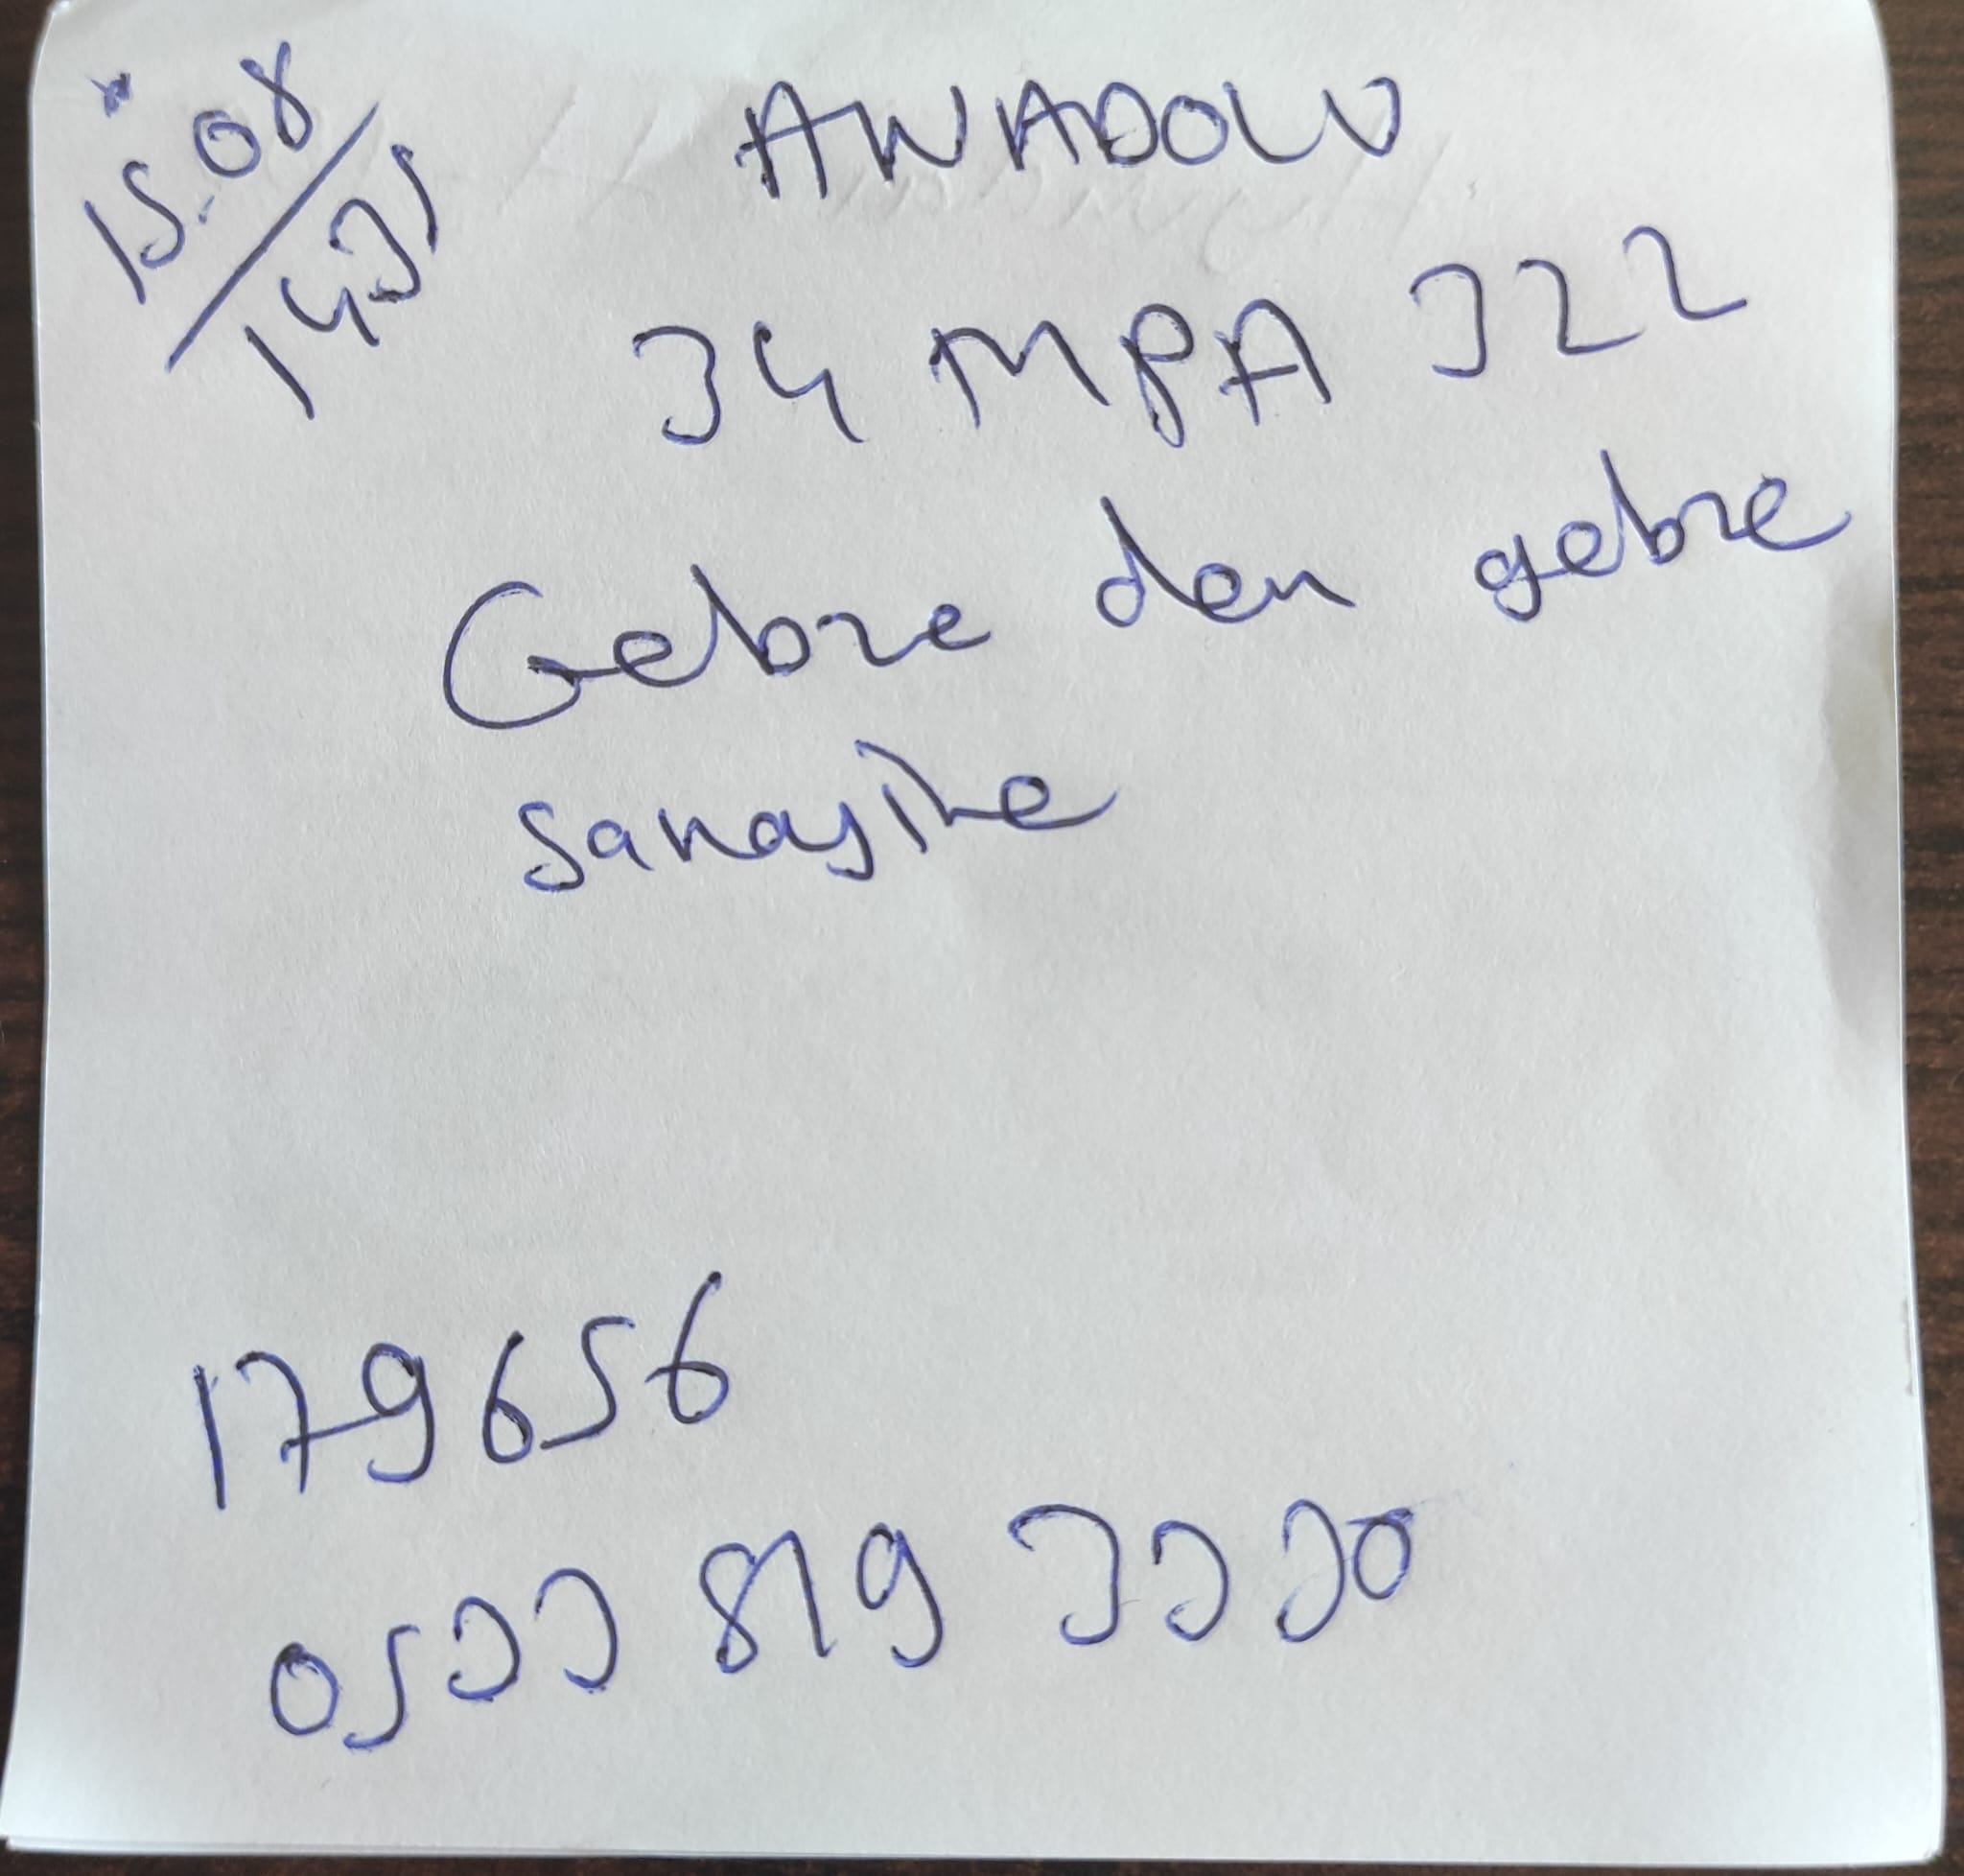 15.08
1431
ANADOLU
34 MPA 322
Gebze den gebze
sanayine
179656
0533 819 3330